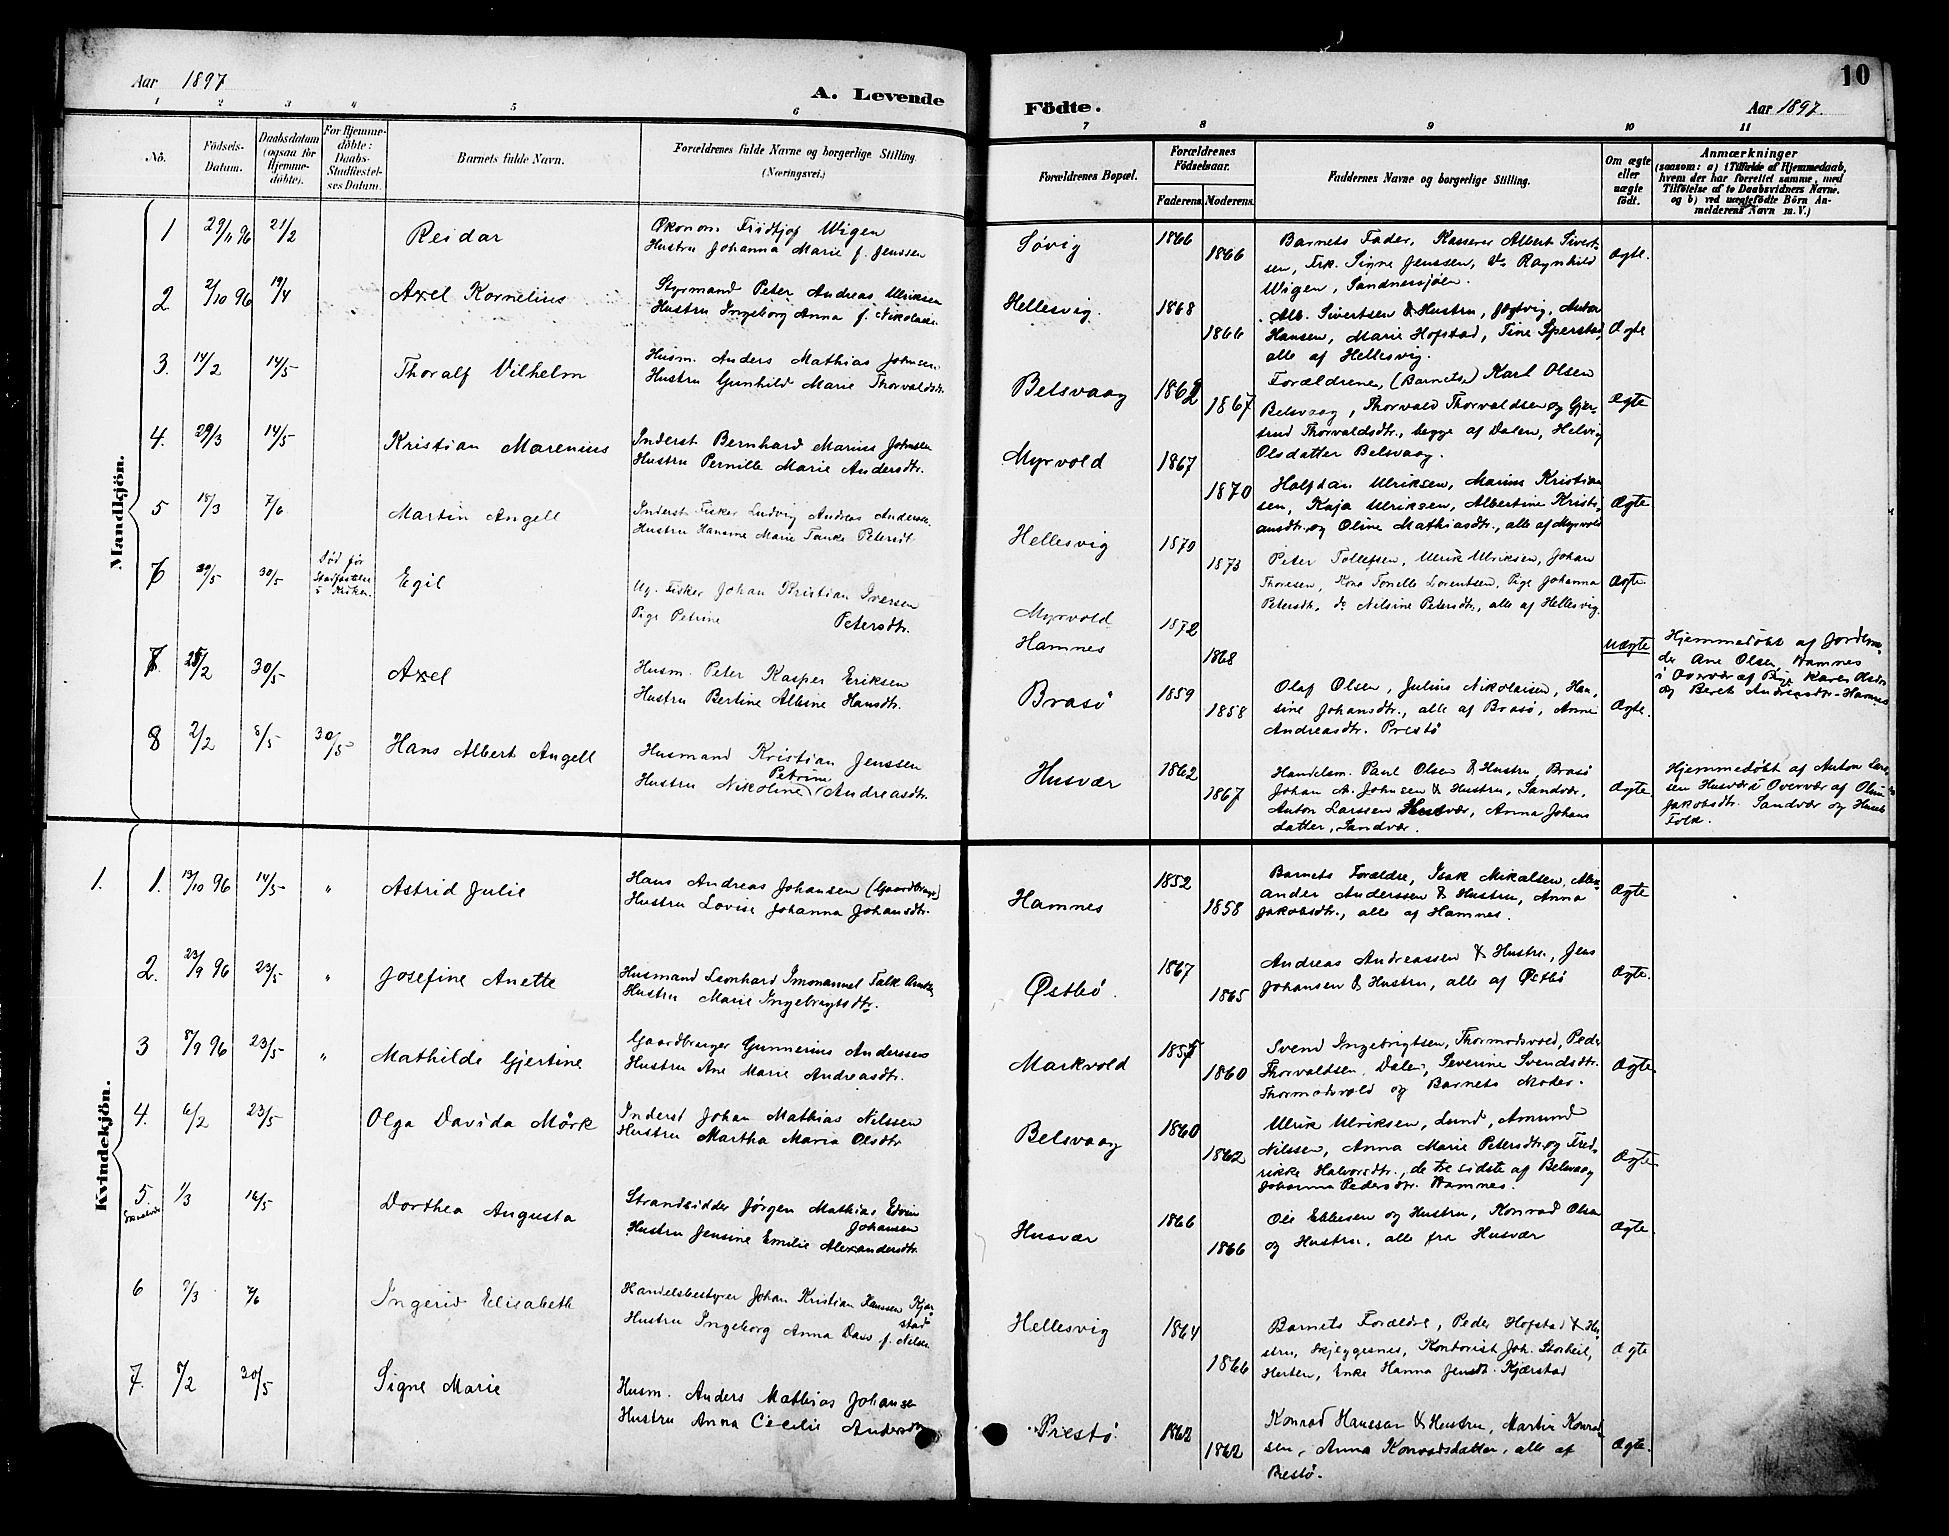 Aar 1897
A. Levende
Födte.
Aar 1897.
10
1 2 3 4 5 6 7 8 9 10 11
No.
Födsels-
Datum.
Daabsdatum
(ogsaa for
Hjemme-
döbte).
For Hjemme-
döbte:
Daabs-
Stadfæstel-
ses Datum.
Barnets fulde Navn.
Forældrenes fulde Navne og borgerlige Stilling.
(Næringsvei.)
Forældrenes Bopæl.
Forældrenes
Födselsaar.
Faderens. Moderens.
Faddernes Navne og borgerlige Stilling.
Om ægte
eller
uægte
født.
Anmærkninger
(saasom: a) i Tilfælde af Hjemmedaab,
hvem der har forrettet samme, med
Tilföielse af to Daabsvidners Navne.
og b) ved uægtefödte Börn An-
melderens Navn m. V.)
Mandkjön.
1 29/11 96 21/2 Reidar
Økonom Fridtjof Wigen
Hustru Johanna Marie f. Jenssen
Søvig 1866 1866
Barnets Fader, Kasserer Albert Sivert-
sen, Frk. Signe Jenssen, do Ragnhild
Wigen, Sandnessjøen.
Ægte.
2. 2/10 96 19/4 Axel Kornelius
Styrmand Peter Andreas Ulriksen
Hustru Ingeborg Anna f. Nikolaise
Hellesvig. 1868 1866
Alb. Sivertsen & Hustru, Anton
Hansen, Marie Hofstad, Tine
alle af Hellesvig.
Ægte
3. 14/2 14/5 Thoralf Vilhelm
Husm. Anders Mathias Johnsen
Hustru Gunhild Marie Thorvaldsdtr.
Belsvaag 1862 1867
Forældrene, (Barnets) Karl Olsen
Belsvaag, Thorvald Thorvaldsen og Gjer-
trud Thorvaldsdtr., begge af Dalen, Helvig
Olsdatter Belsvaag.
Ægte
4. 29/3 14/5 Kristian Marenius
Inderst Bernhard Marius Johnsen
Hustru Pernille Marie Andersdtr.
Myrvold 1867 1870
Halfdan Ulriksen, Marius Kristian
sen, Kaja Ulriksen, Albertine Kristi-
ansdtr. og Oline Mathiasdtr., alle af Myrvold
Ægte
5 18/3 7/6 Martin Angell
Inderst Fisker Ludvig Andreas Anderse
Hustru Hansine Marie Tanke Petersdt.
Hellesvig 1870 1873
Peter Tollefsen, Ulrik Ulriksen, Johan
Thoresen, Kona Tonelle Lorentsen, Pige Johanna
Petersdtr, do Nilsine Petersdtr, alle af Hellesvig.
Ægte.
6 30/5 Død før
Stadfæstelse
i Kirken.
Egil
Ug. Fisker Johan Kristian Iversen
Pige Petrine Petersdtr.
Myrvold
Hamnes
1872 1868
Uægte
Hjemmedøbt af Jordemo-
der Ane Olsen, Hamnes
i Overvær af Pige Karen Olsdtr
og Beret Andreasdtr. Hamnes
7. 25/2 30/5 Axel
Husm. Peter Kasper Eriksen
Hustru Bertine Albine Hansdtr.
Brasø 1859 1858
Olaf Olsen, Julius Nikolaisen, Han-
sine Johansdtr., alle af Brasø, Anne
Andreasdtr. Prestø
Ægte.
8 2/2 8/5 30/5 Hans Albert Angell
Husmand Kristian Jenssen
Hustru Nikoline Petrine Andreasdtr.
Husvær 1862 1867
Handelsm. Paul Olsen & Hustru, Brasø
Johan A. Johnsen & Hustru, Sandvær,
Anton Larssen Husvær, Anna Johans
datter, Sandvær.
Ægte.
Hjemmedøbt af Anton Lars-
sen Husvær i Overvær af Oline
Jakobsdtr. Sandvær og Husets
Folk.
Kvindekjön.
1. 1. 13/10 96 14/5 " Astrid Julie
Hans Andreas Johansen (Gaardbruge)
Hustru Lovise Johanna Johansdtr.
Hamnes 1852 1858
Barnets Forældre, Isak Mikalsen, Alex-
ander Anderssen & Hustru, Anna
Jakobsdtr., alle af Hamnes.
Ægte
2. 23/9 96 23/5 " Josefine Anette
Husmand Leonhard Falk
Hustru Marie Ingebrigtsdtr.
Østbø. 1867 1865
Andreas Andreassen & Hustru, Jens
Johansen & Hustru, alle af Østbø
Ægte.
3 8/9 96 23/5 " Mathilde Gjertine
Gaardbruger Gunnerius Anderssen
Hustru Ane Marie Andreasdtr.
Markvold 1857 1860
Svend Ingebrigtsen, Thormodsvold, Peder
Thorvaldsen, Dalen, Severine Svendsdtr.
Thormodsvold og Barnets Moder.
Ægte.
4. 6/2 23/5 Olga Davida Mörk
Inderst Johan Mathias Nilssen
Hustru Martha Maria Olsdtr
Belsvaag 1860 1862
Ulrik Ulriksen, Lund, Amund
Nilssen, Anna Marie Petersdtr. og Fred-
rikke Halvorsdtr., de tre sidste af Belsvaag
Johanna Pedersdtr. Hamnes.
Ægte.
5. 1/3 16/5 Dorthea Augusta
Strandsidder Jørgen Mathias Edvin
Johansen
Hustru Jensine Emilie Alexandersdtr.
Husvær 1866 1866
Ole Ebbesen og Hustru, Konrad Olsen
og Hustru, alle fra Husvær
Ægte.
6 7/3 Ingerid Elisabeth
Handelsbestyrer Johan Kristian Hanssen Kjær-
stad
Hustru Ingeborg Anna f. Nilsen
Hellesvig 1864 1866
Barnets Forældre, Peder Hofstad & Hu-
stru, Kontorist Joh.
Enke Hanna Jensdtr. Kjærstad
Ægte
7. 30/5 Signe Marie
Husm. Anders Mathias Johansen
Hustru Anna Cecilie Andersdtr
Prestø 1862 1862
Konrad Hanssen & Hustru, Martin Konrad-
sen, Anna Konradsdatter, alle af
Prestø.
Ægte.